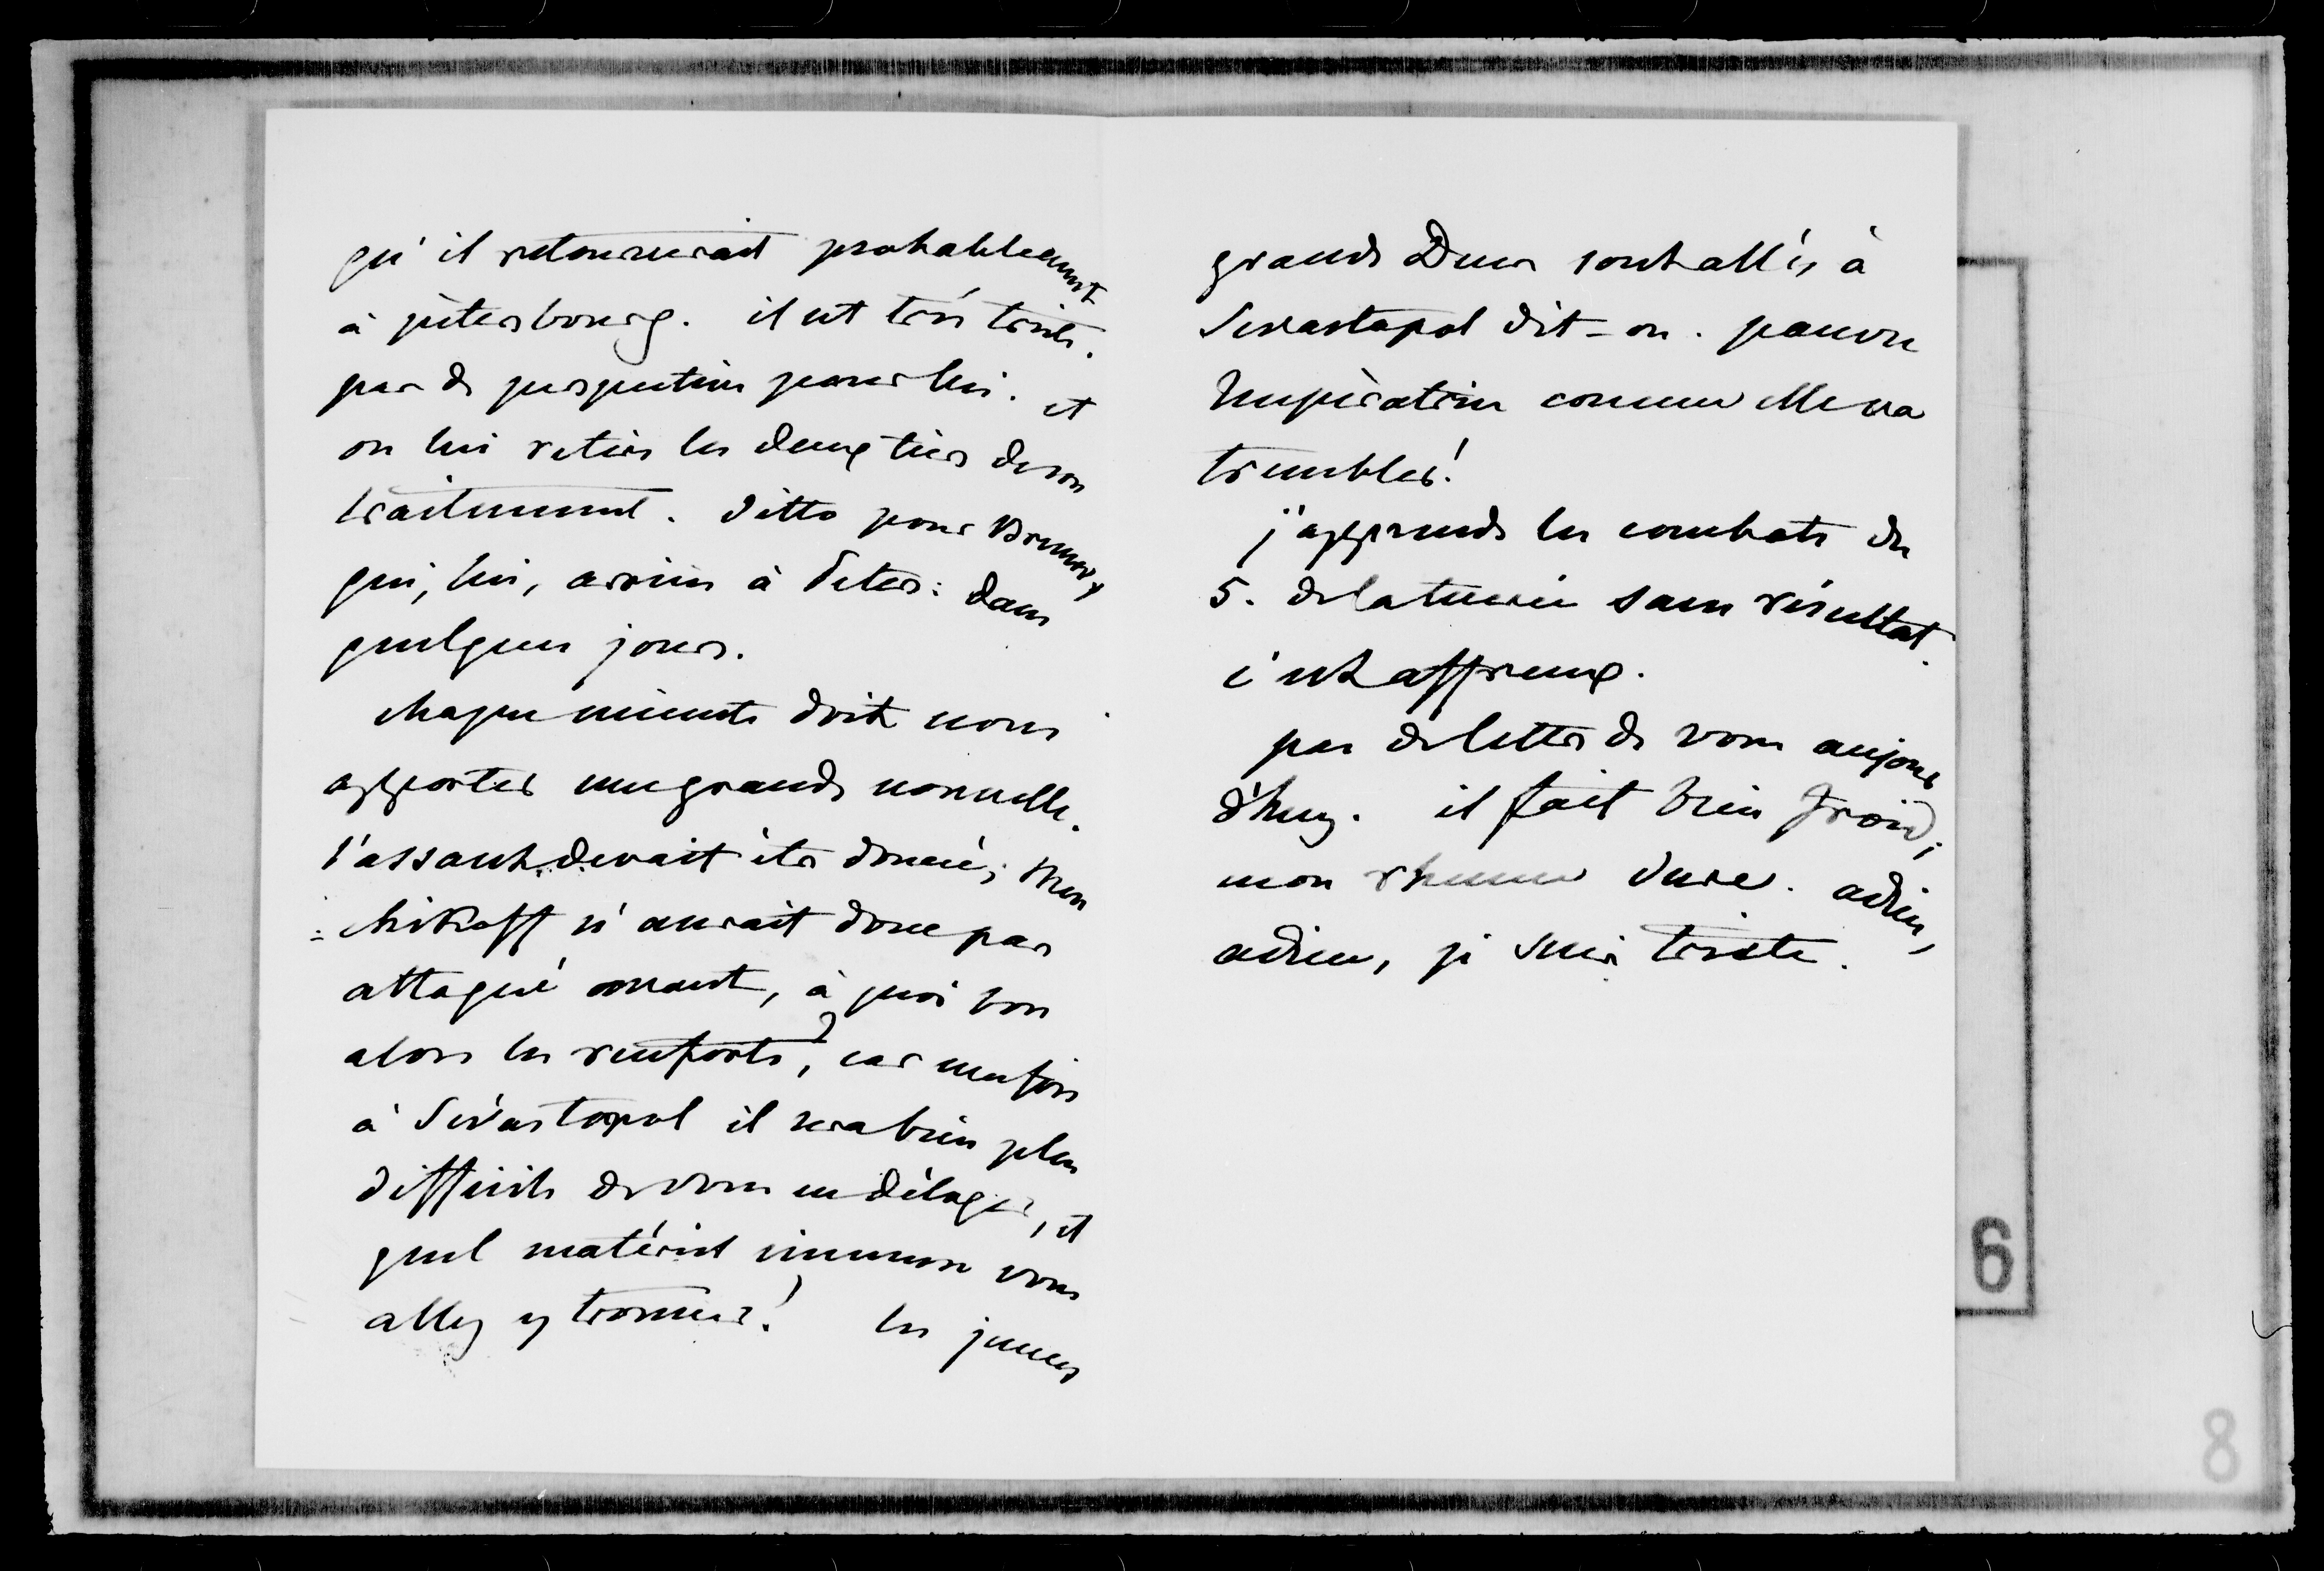 qu'il retournerait probablement
à pètersbourg. il est très triste.
pas de perspective pour lui. et
on lui retire les deux tiers de son
traitement. ditto pour Brunnow
qui, lui, arrive à Peters: dans
quelques jours.
chaque minute doit nous
apporter une grande nouvelle.
l'assaut devait être donné; Men
=chikoff n'aurait donc pas
attaqué avant, à quoi bon
alors les renforts?, car une fois
à Sévastopol il sera bien plus
difficile de vous en déloger, et
quel matériel immense vous
allez y trouver! les jeunes
grands Ducs sont allés à
Sevastopol dit-on. pauvre
Impèratrice comme elle va
trembler!
j'apprends les combats du
5. de la tuerie sans résultat.
c'est affreux.
pas de lettre de vous aujour
d'huy. il fait bien froid;
mon rhume dure. adieu,
adieu, je suis triste.
6
8